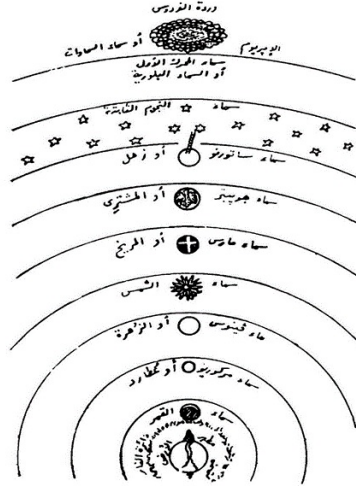 وردة الفردوس
الإمبريوم أو سماء السماوات
سماء المحرك الأول
أو السماء البلورية
سماء النجوم الثابتة
سماء ساتورنو أو زحل
سماء جوبيتر أو المشتري
سماء مارس أو المريخ
سماء الشمس
ماء ڤينوس أو الزهرة
سماء مركوريو أو عطارد
سماء القمر
دائرة النار